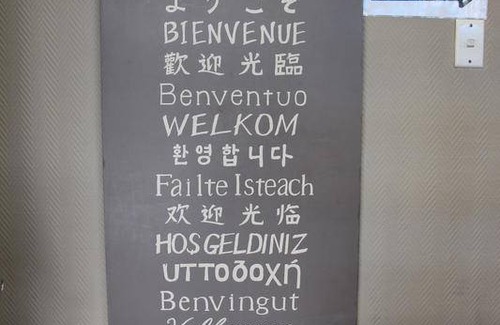 ようこそ
BIENVENUE
歡迎光臨
Benventuo
WELKOM
환영합니다
Failte Isteach
欢迎光临
HOŞGELDINIZ
υττοδοχή
Benvingut